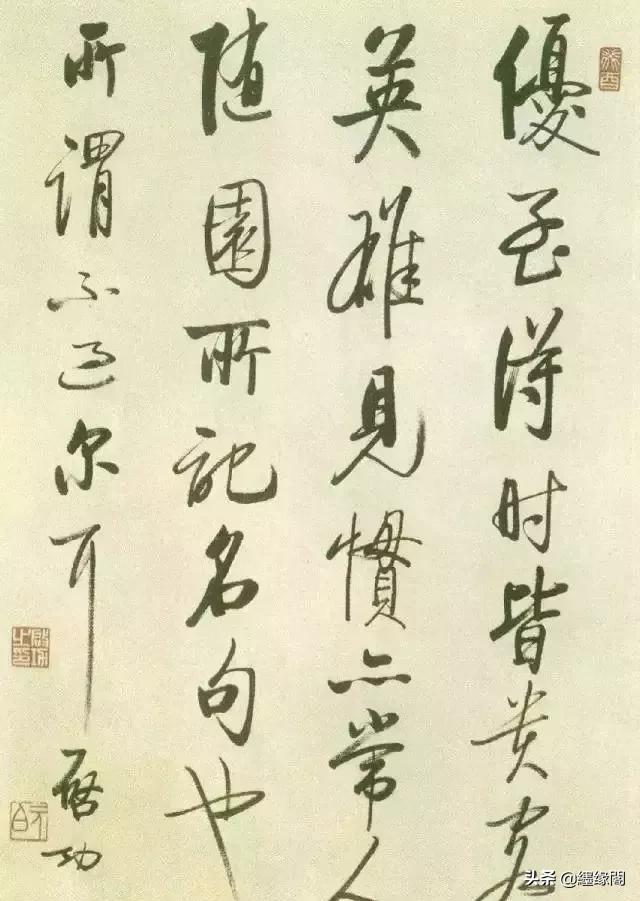 優孟得时皆贵客
英雄見慣亦常人
随園所記名句也
所謂不过尔耳
啓功
头条 @纆缘閣